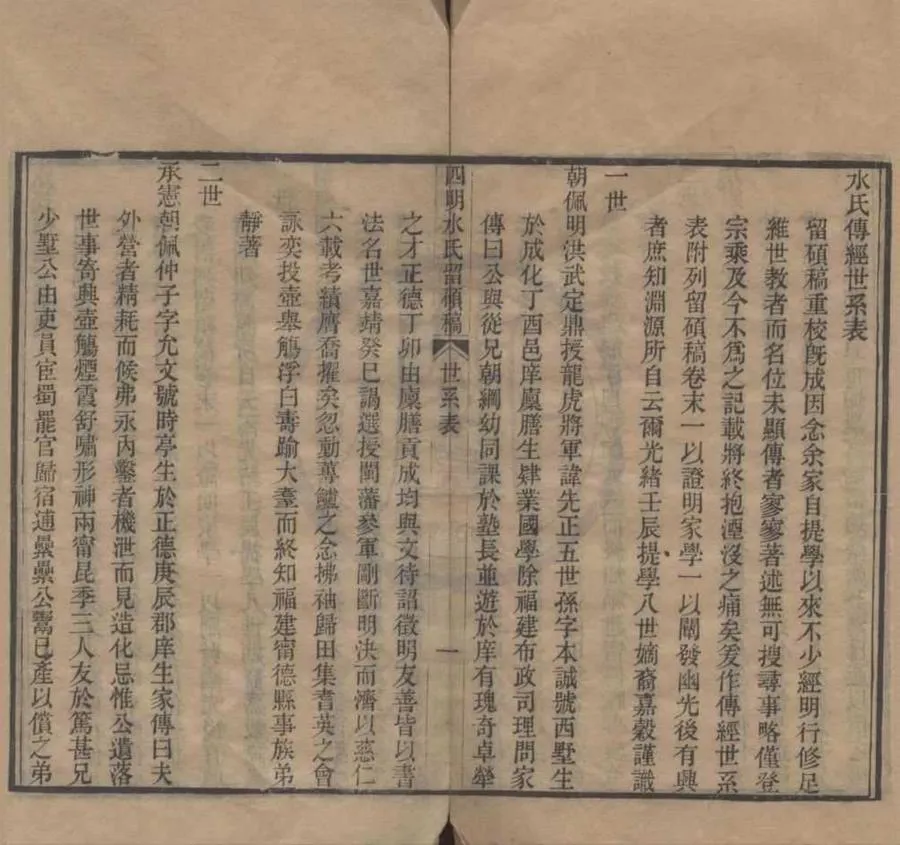 水氏傳經世系表
留碩稿重校旣成因念余家自提學以來不少經明行修足
維世教者而名位未顯傳者寥寥著述無可搜尋事略僅登
宗乘及今不爲之記載將終抱湮沒之痛矣爰作傳經世系
表附列留碩稿卷末一以證明家學一以闡發幽先後有興
者庶知淵源所自云爾光緒壬辰提學八世嫡裔嘉穀謹識
一世
朝佩明洪武定鼎授龍虎將軍諱先正五世孫字本誠號西墅生
於成化丁酉邑庠廩膳生肄業國學除福建布政司理問家
傳曰公與從兄朝綱幼同課於塾長並遊於庠有瑰奇卓犖
四明水氏留碩稿 世系表 一
之才正德丁卯由廩膳貢成均與文待詔徵明友善皆以書
法名世嘉靖癸巳謁選授閩藩參軍剛斷明決而濟以慈仁
六載考績膺喬擢矣忽動蓴鱸之念拂袖歸田集耆英之會
詠奕投壺舉觴浮白壽踰大耋而終知福建甯德縣事族弟
靜著
二世
承憲朝佩仲子字允文號時亭生於正德庚辰郡庠生家傳曰夫
外營者精耗而候弗永內鑿者機泄而見造化忌惟公遺落
世事寄興壺觴煙霞舒嘯形神兩甯昆季三人友於篤甚兄
少墅公由吏員宦蜀罷官歸宿逋纍纍公鬻已產以償之弟